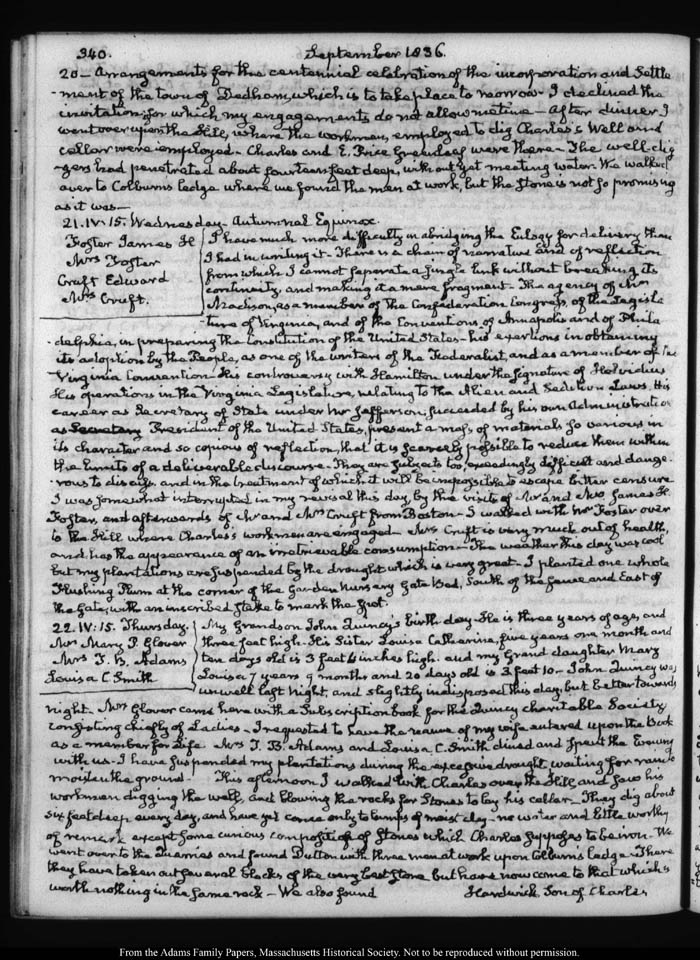 340.
September 1836.
20 – Arrangements for the centennial celebration of the incorporation and Settle
-ment of the town of Dedham, which is to take place to morrow – I declined the
invitation, for which my engagements do not allow me time – After dinner I
went over upon the Hill, where the workmen, employed to dig Charles's Well and
cellar were employed – Charles and E. Price Greenleaf were there – The well-dig
gers had penetrated about fourteen feet deep, without yet meeting water. We walked
over to Colburn's ledge where we found the men at work, but the Stone is not so promising
as it was –
21. IV:15. Wednesday. Autumnal Equinox
Foster James H
Mrs Foster
Cruft Edward
Mrs Cruft.
I have much more difficulty in abridging the Eulogy for delivery than
I had in writing it – There is a chain of narrative and of reflection
from which I cannot separate a single link without breaking its
continuity, and making it a mere fragment – The agency of Mr
Madison, as a member of the Confederation Congress, of the Legisla
-ture of Virginia, and of the Conventions of Annapolis and of Phila
-delphia, in preparing the Constitution of the United States – his exertions in obtaining
its adoption by the People, as one of the writers of the Federalist, and as a member of the
Virginia Convention – His controversy with Hamilton under the signature of Helvidius
His operations in the Virginia Legislature, relating to the Alien and Sedition Laws. His
career as Secretary of State under Mr Jefferson, succeeded by his own Administration
as Secretary President of the United States, present a mass of materials so various in
its character and so copious of reflection, that it is scarcely possible to reduce them within
the limits of a deliverable discourse – They are subjects too, exceedingly difficult and dange
-rous to discuss and in the treatment of which it will be impossible to escape bitter censure
I was somewhat interrupted in my revisal this day, by the visits of Mr and Mrs James H.
Foster, and afterwards of Mr and Mrs Cruft from Boston – I walked with Mr Foster over
to the Hill where Charles's workmen are engaged – Mrs Cruft is very much out of health,
and has the appearance of an irretrievable consumption – The weather this day was cool
but my plantations are suspended by the drought which is very great – I planted one whole
Flushing Plum at the corner of the Garden Nursery Gate Bed, South of the fence and East of
the Gate, with an inscribed stake to mark the spot.
22. IV:15. Thursday.
Mrs Mary P. Glover
Mrs T. B. Adams
Louisa C. Smith
My Grandson John Quincy's birth-day – He is three years of age, and
three feet high – His Sister Louisa Catherine, five years one month and
ten days old is 3 feet 4 inches high. and my Grand daughter Mary
Louisa 7 years 9 months and 20 days old is 3 feet 10 – John Quincy was
unwell last Night, and slightly indisposed this day, but better towards
night – Mrs Glover came here with a Subscription book for the Quincy charitable Society
consisting chiefly of Ladies – I requested to have the name of my wife entered upon the Book
as a member for Life. Mrs T. B. Adams and Louisa C. Smith dined and spent the Evening
with us – I have suspended my plantations during the excessive drought waiting for rain to
moisten the ground – This afternoon I walked with Charles over the Hill and saw his
workmen digging the well, and blowing the rocks for Stones to lay his cellar – They dig about
six feet deep every day, and have yet come only to lumps of moist clay – no water and little worthy
of remark except some curious composition of Stones which Charles supposes to be iron – We
went over to the Quarries and found Dutton with three men at work upon Colburn's ledge – There
they have taken out several blocks of the very best stone but have now come to that which is
worth nothing in the same rock – We also found Hardwick Son of Charles
From the Adams Family Papers, Massachusetts Historical Society. Not to be reproduced without permission.